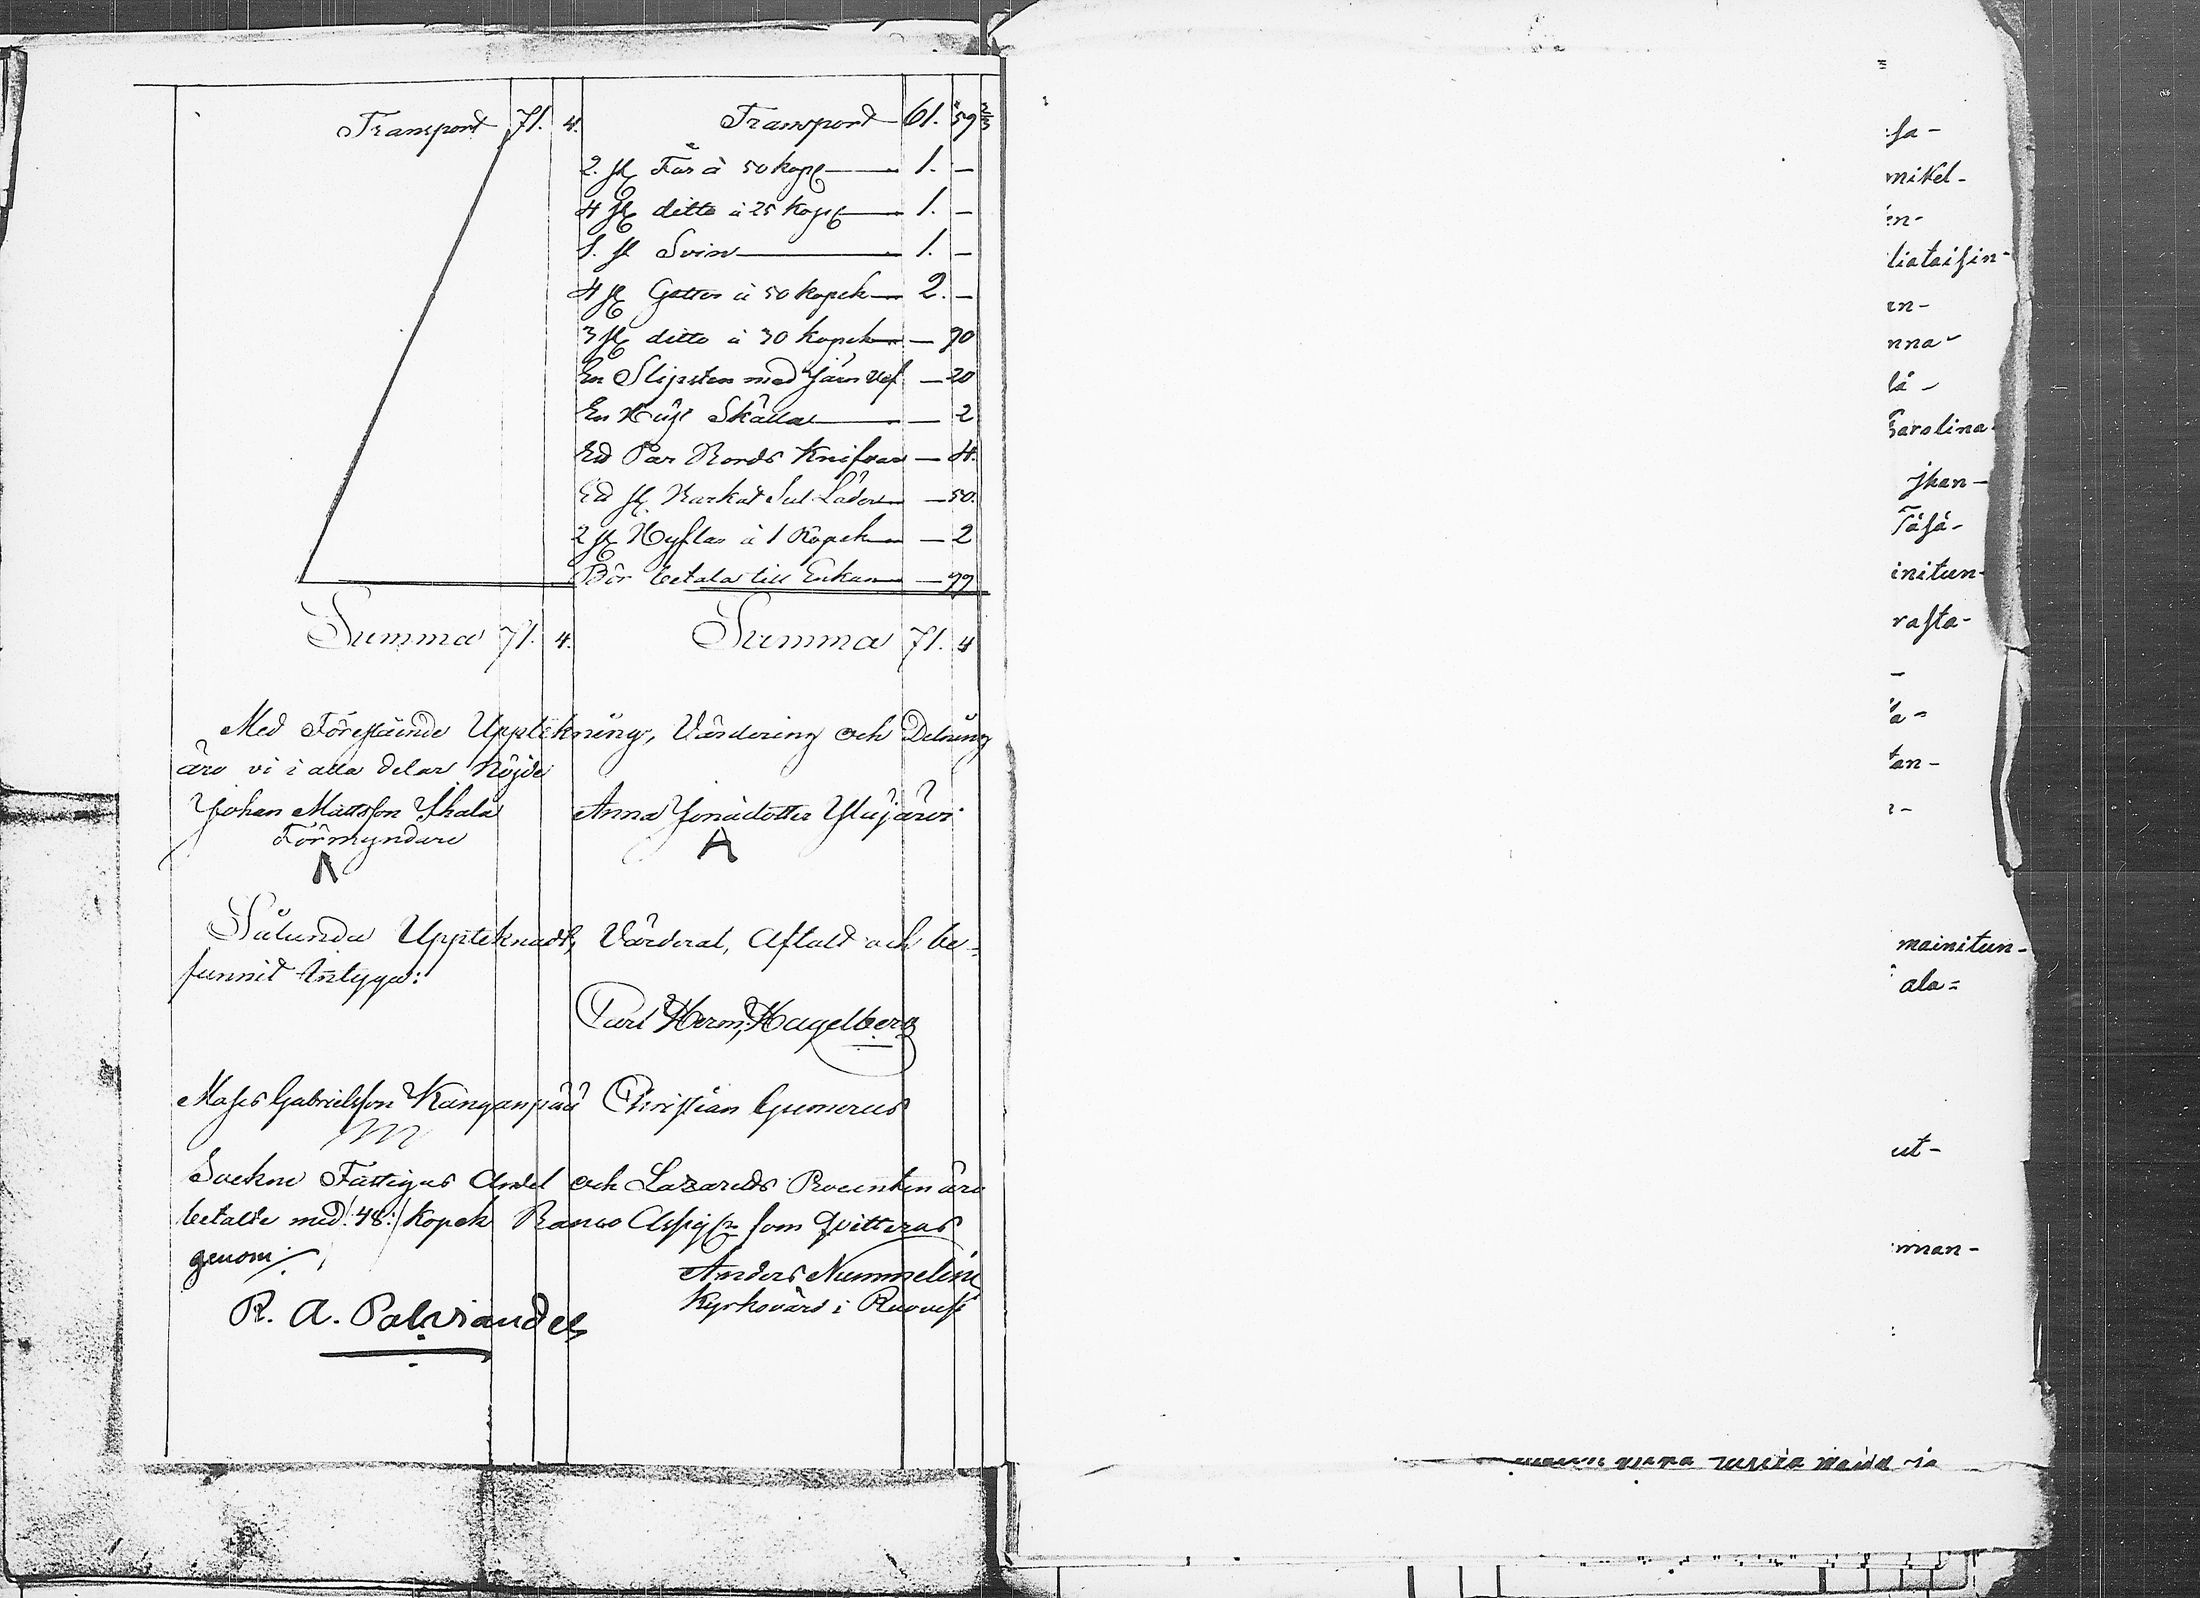 Transport 71. 4. Transport 61. 59 2/3
2. st Får à 50 kop 1. —
4 st ditto à 25 kop 1. —
1. st Svin 1. —
4 st Getter à 50 kopek 2. —
3 st ditto à 30 kopek — 90
En Slipsten med Järn Vef — 20
En Skälla — 2
Ett Par Bords Knifvar — 4.
Ett st. Barkat Sul Läder — 50.
2 st Hyflar à 1 Kopek — 2
Bör betalas till Enkan — 99
Summa 71. 4. Summa 71. 4
Med Förestående Uppteckning, Värdering och Delning
äro vi i alla delar Nöjde
Johan Mattsson Skala Anna Jonædotter Ylijärvi
Förmyndare A
Sålunda Upptecknadt, Värderat, Aftalt och be-
funnit Intyga:
Carl Herm. Hagelberg
Moses Gabrielsson Kanganpää Christian Gumerus
M
Sockne Fattigas Andel och Lazaretts Procenten äro
betalte med 48: Kopek Banco Assig som qvitteras
genom
Anders Nummelin
R. A. Palviander Kyrkovärd i Ruovesi
sa-
mikel-
en-
liataisin-
en-
nna-
lä-
Carolina
jhan-
Täsä-
initun-
rasta-
a-
tan-
mainitun-
ala=
ut-
nnan-